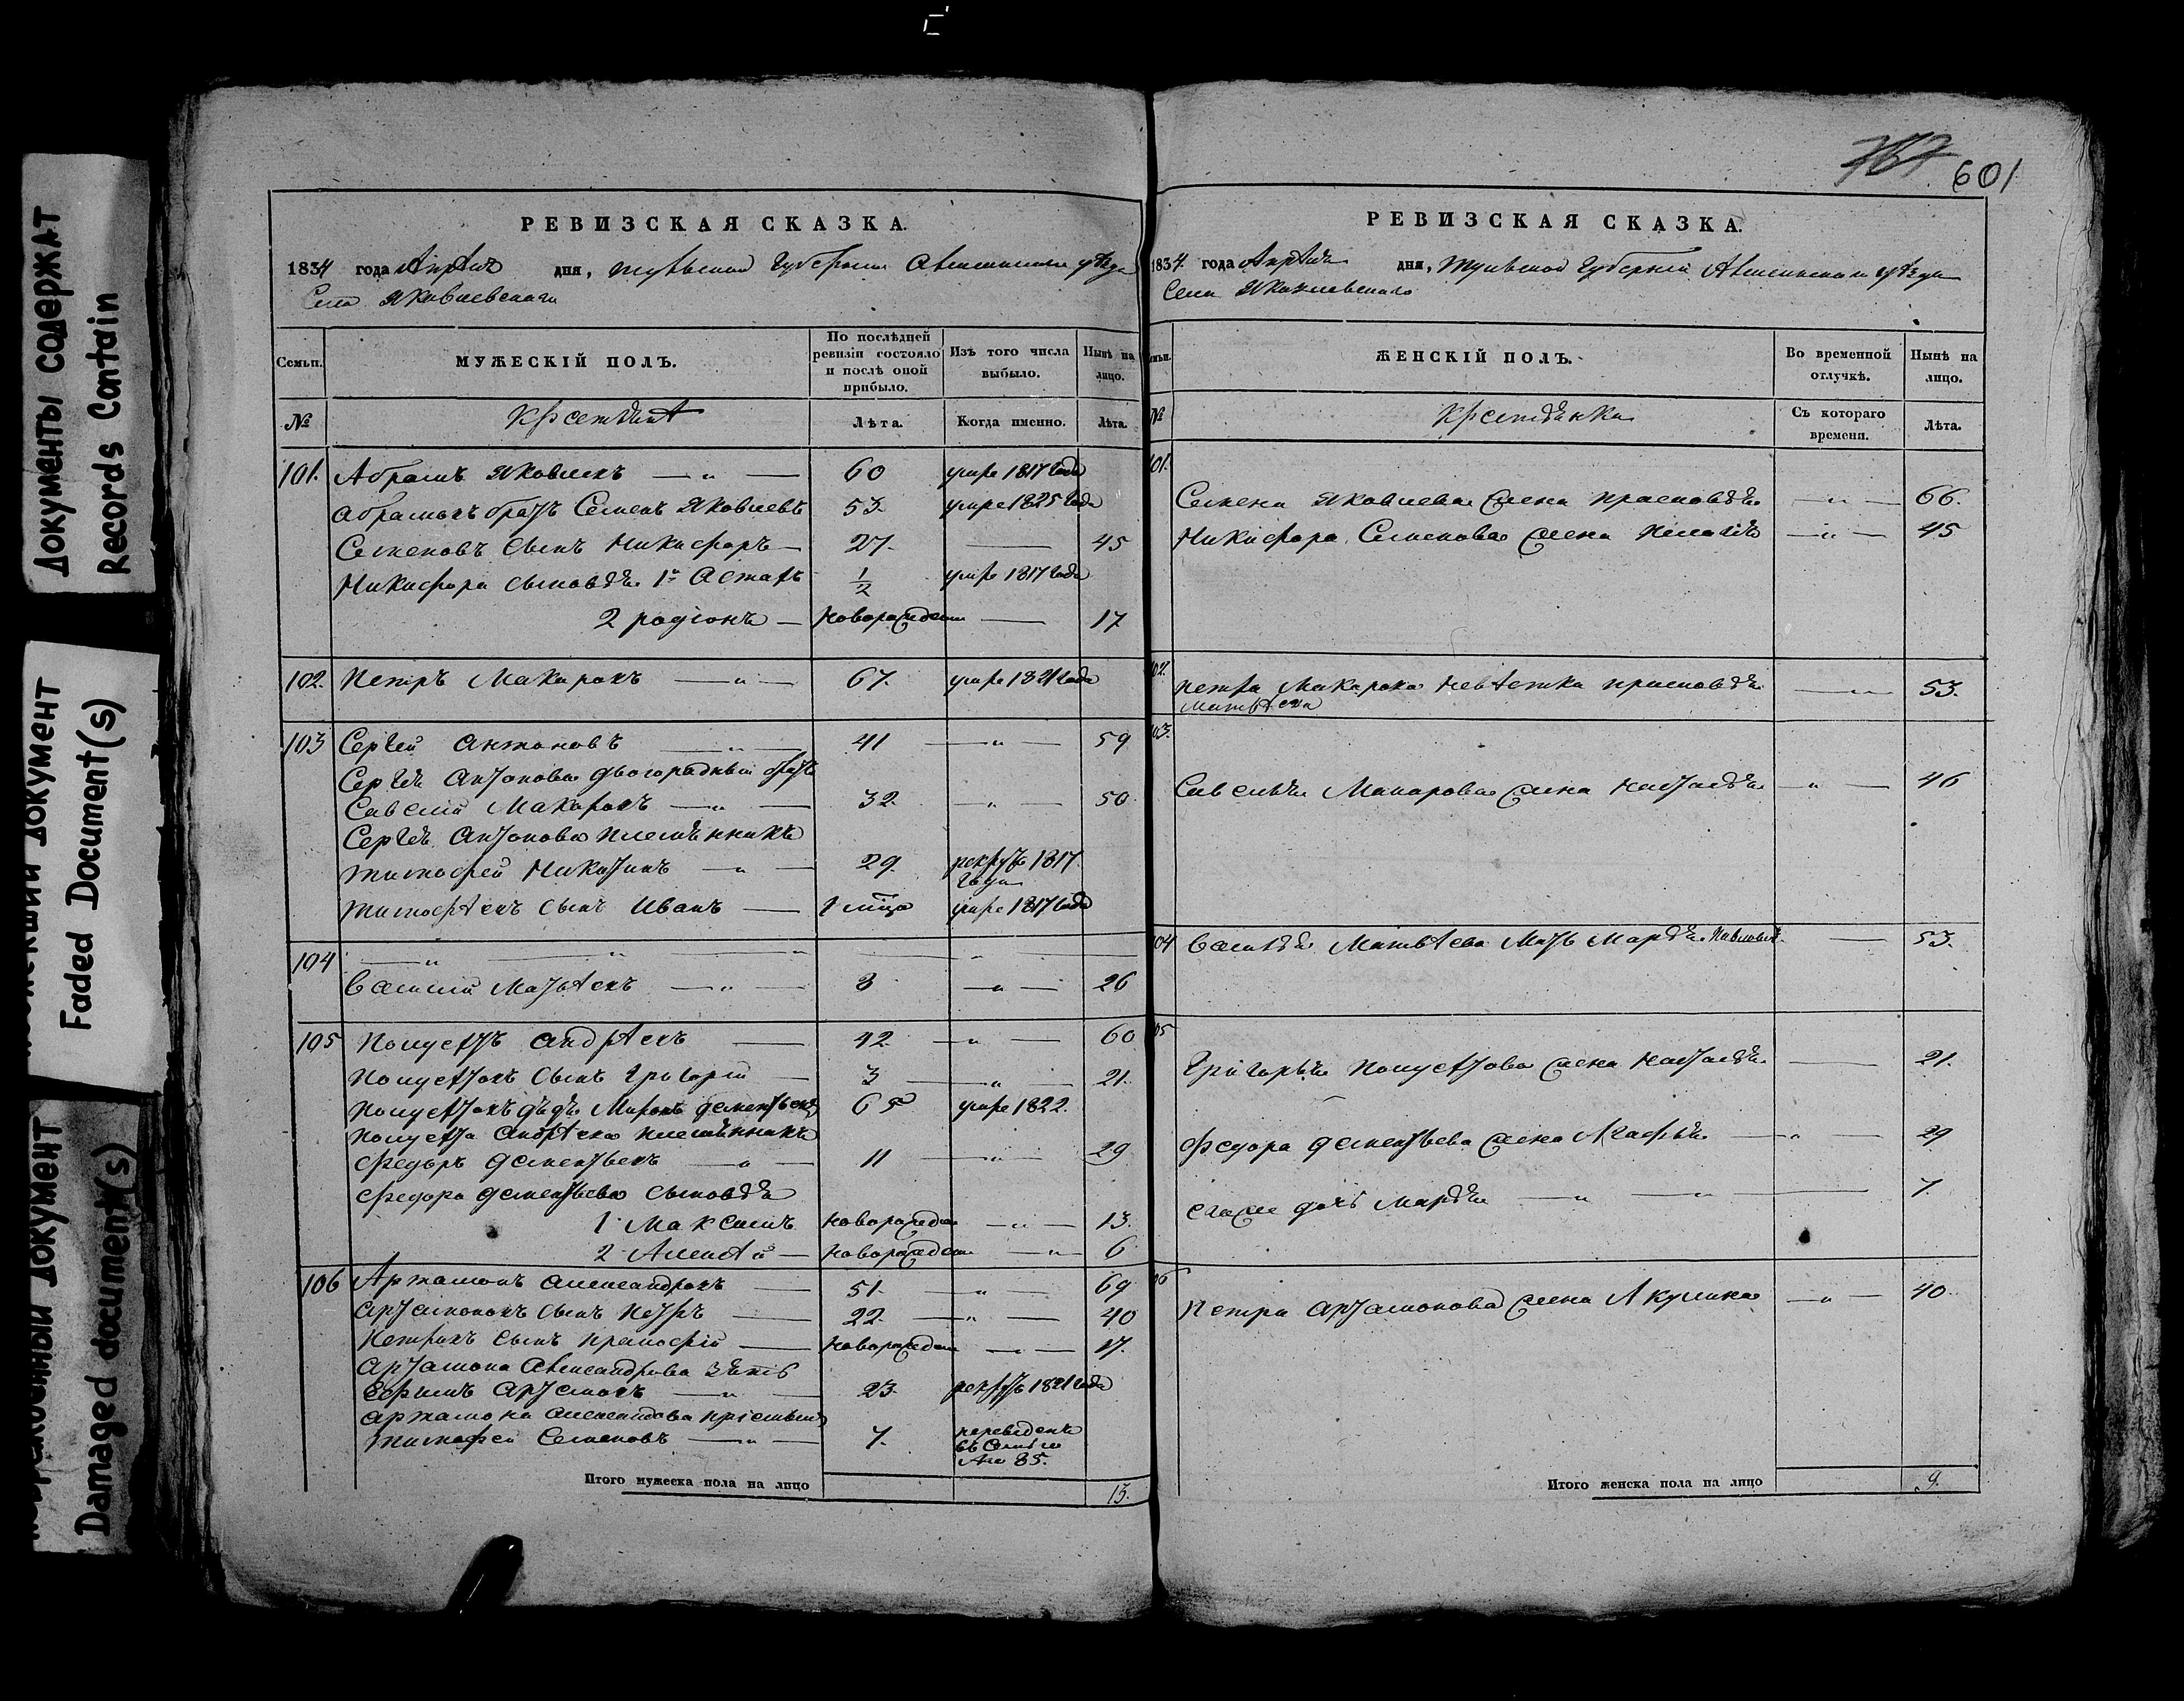 Документы содержат
Records Contain
документ
Faded Document(s)
документ
Damaged document(s)
РЕВИЗСКАЯ СКАЗКА.
1834 года Апрѣля дня, Тульской Губернии Алексинскаго уѣзда
Села Яковлевскаго
Семьи.
МУЖЕСКІЙ ПОЛЪ.
По послѣдней ревизіи состояло и послѣ оной прибыло.
Изъ того числа выбыло.
Нынѣ на лицо.
№
Крестьяне
Лѣта.
Когда именно.
Лѣта.
101. Абрамъ Яковлевъ — „ — 60 умре 1817 года
Абрамовъ братъ Семенъ Яковлевъ 53. умре 1825 года
Семеновъ сынъ Никифоръ — 27. — 45
Никифора сыновья 1й Астафъ 1/2 умре 1817 года
2 родіонъ — новорожденъ — 17
102. Петръ Макаровъ — „ — 67. умре 1821 года
103 Сергей Антоновъ — „ — 41 — „ — 59
Сергѣя Антонова двоюродный братъ
Савелій Макаровъ — „ — 32. — „ — 50
Сергѣя Антонова племянникъ
Тимофей Никитинъ — „ — 29. рекрутъ 1817
года
Тимофѣевъ сынъ Иванъ — умре 1817 года
104 — „ — „ — „ — „ —
Василий Матвѣевъ — „ — 8 — „ — 26
105 Полуектъ Андрѣевъ — 42. — „ — 60
Полуектовъ сынъ Григорій — 3 — „ — 21.
Полуектовъ дядя Миронъ Дементьевъ 65 умре 1822.
Полуекта Андрѣева племянникъ
Федоръ Дементьевъ — „ — 11 — „ — 29
Федора Дементьева сыновья
1 Максимъ новорожденъ — „ — 13.
2 Алексѣй — новорожденъ — „ — 6
106 Артамонъ Александровъ — 51. — „ — 69
Артамоновъ сынъ Петръ — 22. — „ — 40
Петровъ сынъ Прокофій — новорожденъ — „ — 17.
Артамона Александрова зять
Ефимъ — „ — 23. рекрутъ 1821 года
Артамона Александрова пріемышъ
Тимофей Семеновъ — „ — 7. переведенъ
въ семью
№ 85.
Итого мужеска пола на лицо 13.
601
РЕВИЗСКАЯ СКАЗКА.
1834. года Апрѣля дня, Тульской Губерніи Алексинскаго уѣзда
Села Яковлевскаго
ЖЕНСКІЙ ПОЛЪ.
Во временной отлучкѣ.
Нынѣ на лицо.
№
Крестьянки
Съ котораго времени.
Лѣта.
101.
Семена Яковлева жена Прасковья — „ — 66.
Никифора Семенова жена Пелагія — „ — 45
102.
Петра Макарова невѣстка Прасковья — „ — 53.
Матвѣева
103.
Савелья Макарова жена Настасья — „ — 46
104 Василья Матвѣева мать Марья Павлова — 53.
105
Григорья Полуектова жена Настасья — 21.
Федора Дементьева жена Агафья — „ — 29
Его же дочь Марья — „ — „ — 7.
106
Петра Артамонова жена Акулина — „ — 40
Итого женска пола на лицо 9.